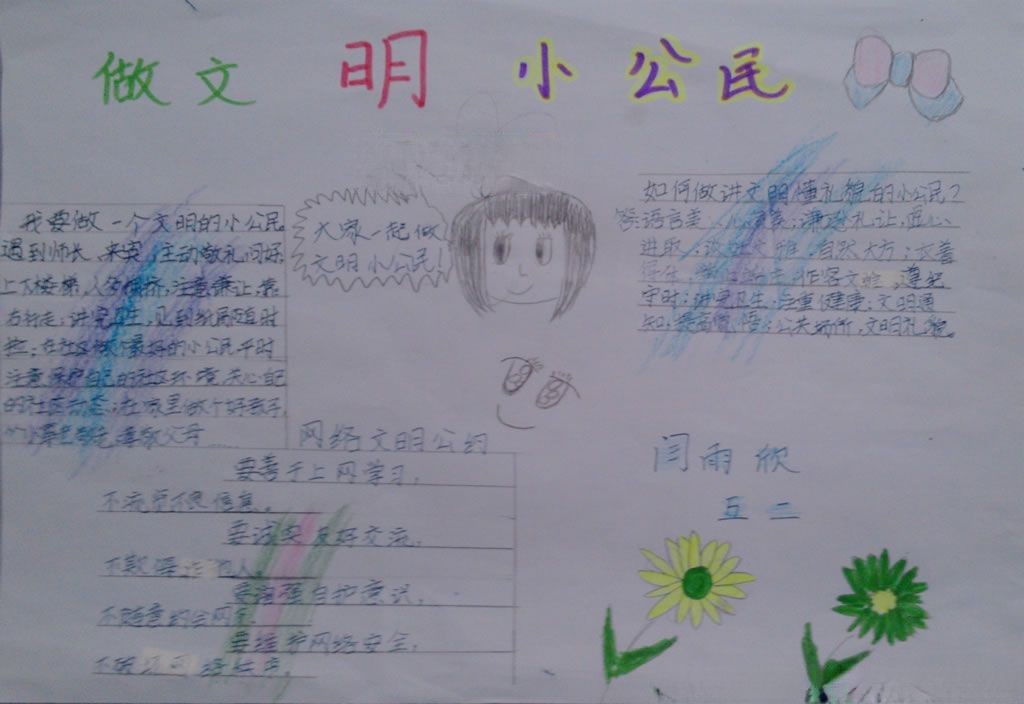 做文明小公民
我要做一个文明的小公民
遇到师长、来宾,主动敬礼问好
上下楼梯,人多拥挤,注意谦让,靠
右行走;讲究卫生,见到纸屑随时
捡;在社区做个最好的小公民平时
注意保护自己的社区环境,关心自己
的社区动态;在家里做个好孩子,
孝敬父母……
大家一起做
文明小公民!
如何做讲文明懂礼貌的小公民?
答:语言美、心灵美;谦逊礼让,虚心
进取;谈吐文雅,自然大方;衣着
得体,作客文雅,遵纪
守时;讲究卫生,注重健康;文明通
知,提高;公共场所,文明礼貌。
网络文明公约
要善于上网学习,
不浏览不良信息。
要诚实友好交流,
不欺侮他人。
要增强自护意识,
不随意约会网友。
要维护网络安全,
不破坏网络秩序。
闫雨欣
五 二